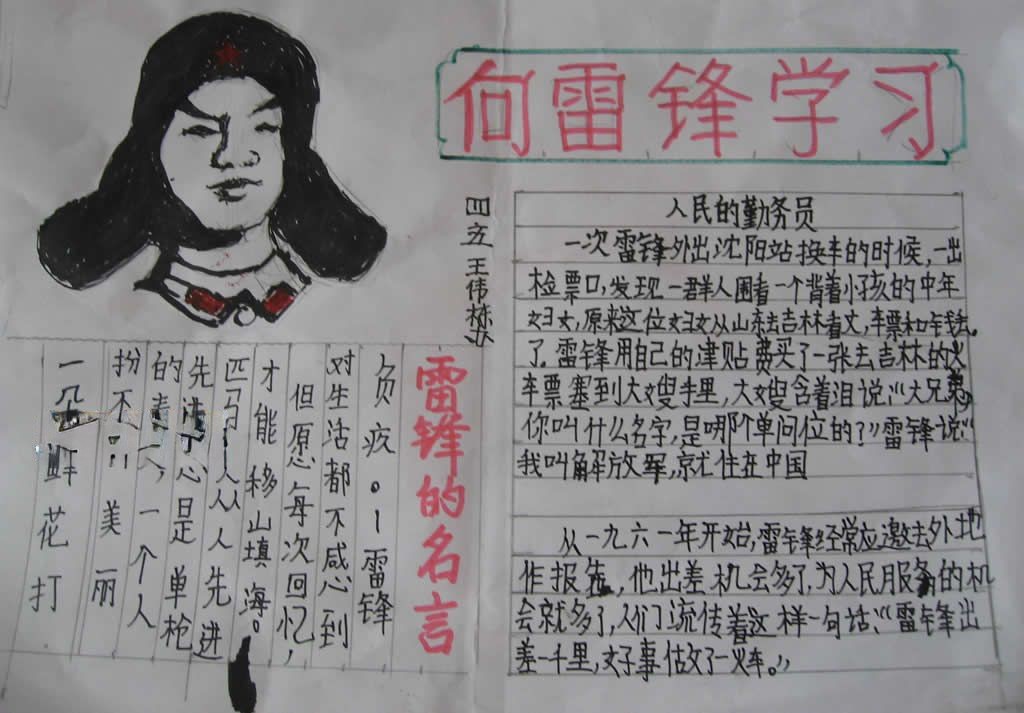 向雷锋学习
四五 王伟
人民的勤务员
一次雷锋外出沈阳站换车的时候,一出
检票口,发现一群人围着一个背着小孩的中年
妇女,原来这位妇女从山东去吉林看丈,车票和钱丢。
了.雷锋用自己的津贴费买了一张去吉林的火
车票塞到大嫂手里,大嫂含着泪说:“大兄弟,
你叫什么名字,是哪个单问位的?”雷锋说“
我叫解放军,就住在中国
从一九六一年开始,雷锋经常应邀去外地
作报告,他出差机会多了,为人民服务的机
会就多了,人们流传着这样一句话:“雷锋出
差一千里,好事做了一火车。”
雷锋的名言
一朵鲜花打
扮不美丽
的春,一个人
先进是单枪
匹马,人人先进
才能移山填海。
但愿每次回忆,
对生活都不感到
负疚。—雷锋